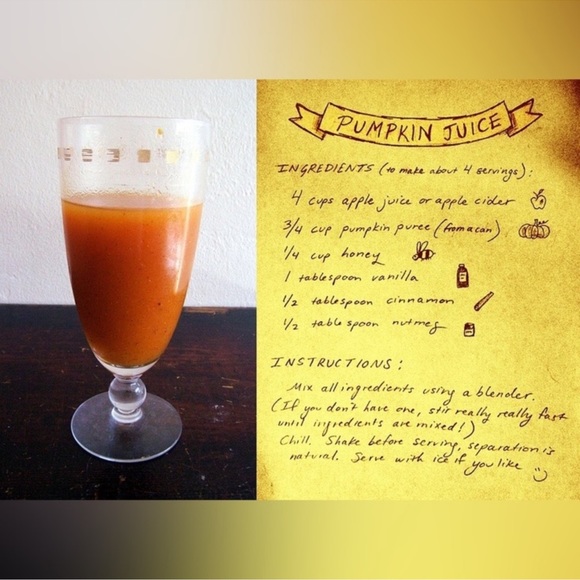 PUMPKIN JUICE
INGREDIENTS (to make about 4 servings):
4 cups apple juice or apple cider
3/4 cup pumpkin puree (from a can)
1/4 cup honey
1 tablespoon vanilla
1/2 tablespoon cinnamon
1/2 tablespoon nutmeg
INSTRUCTIONS:
Mix all ingredients using a blender.
(If you don't have one, stir really really fast
until ingredients are mixed!)
Chill. Shake before serving, separation is
natural. Serve with ice if you like :)